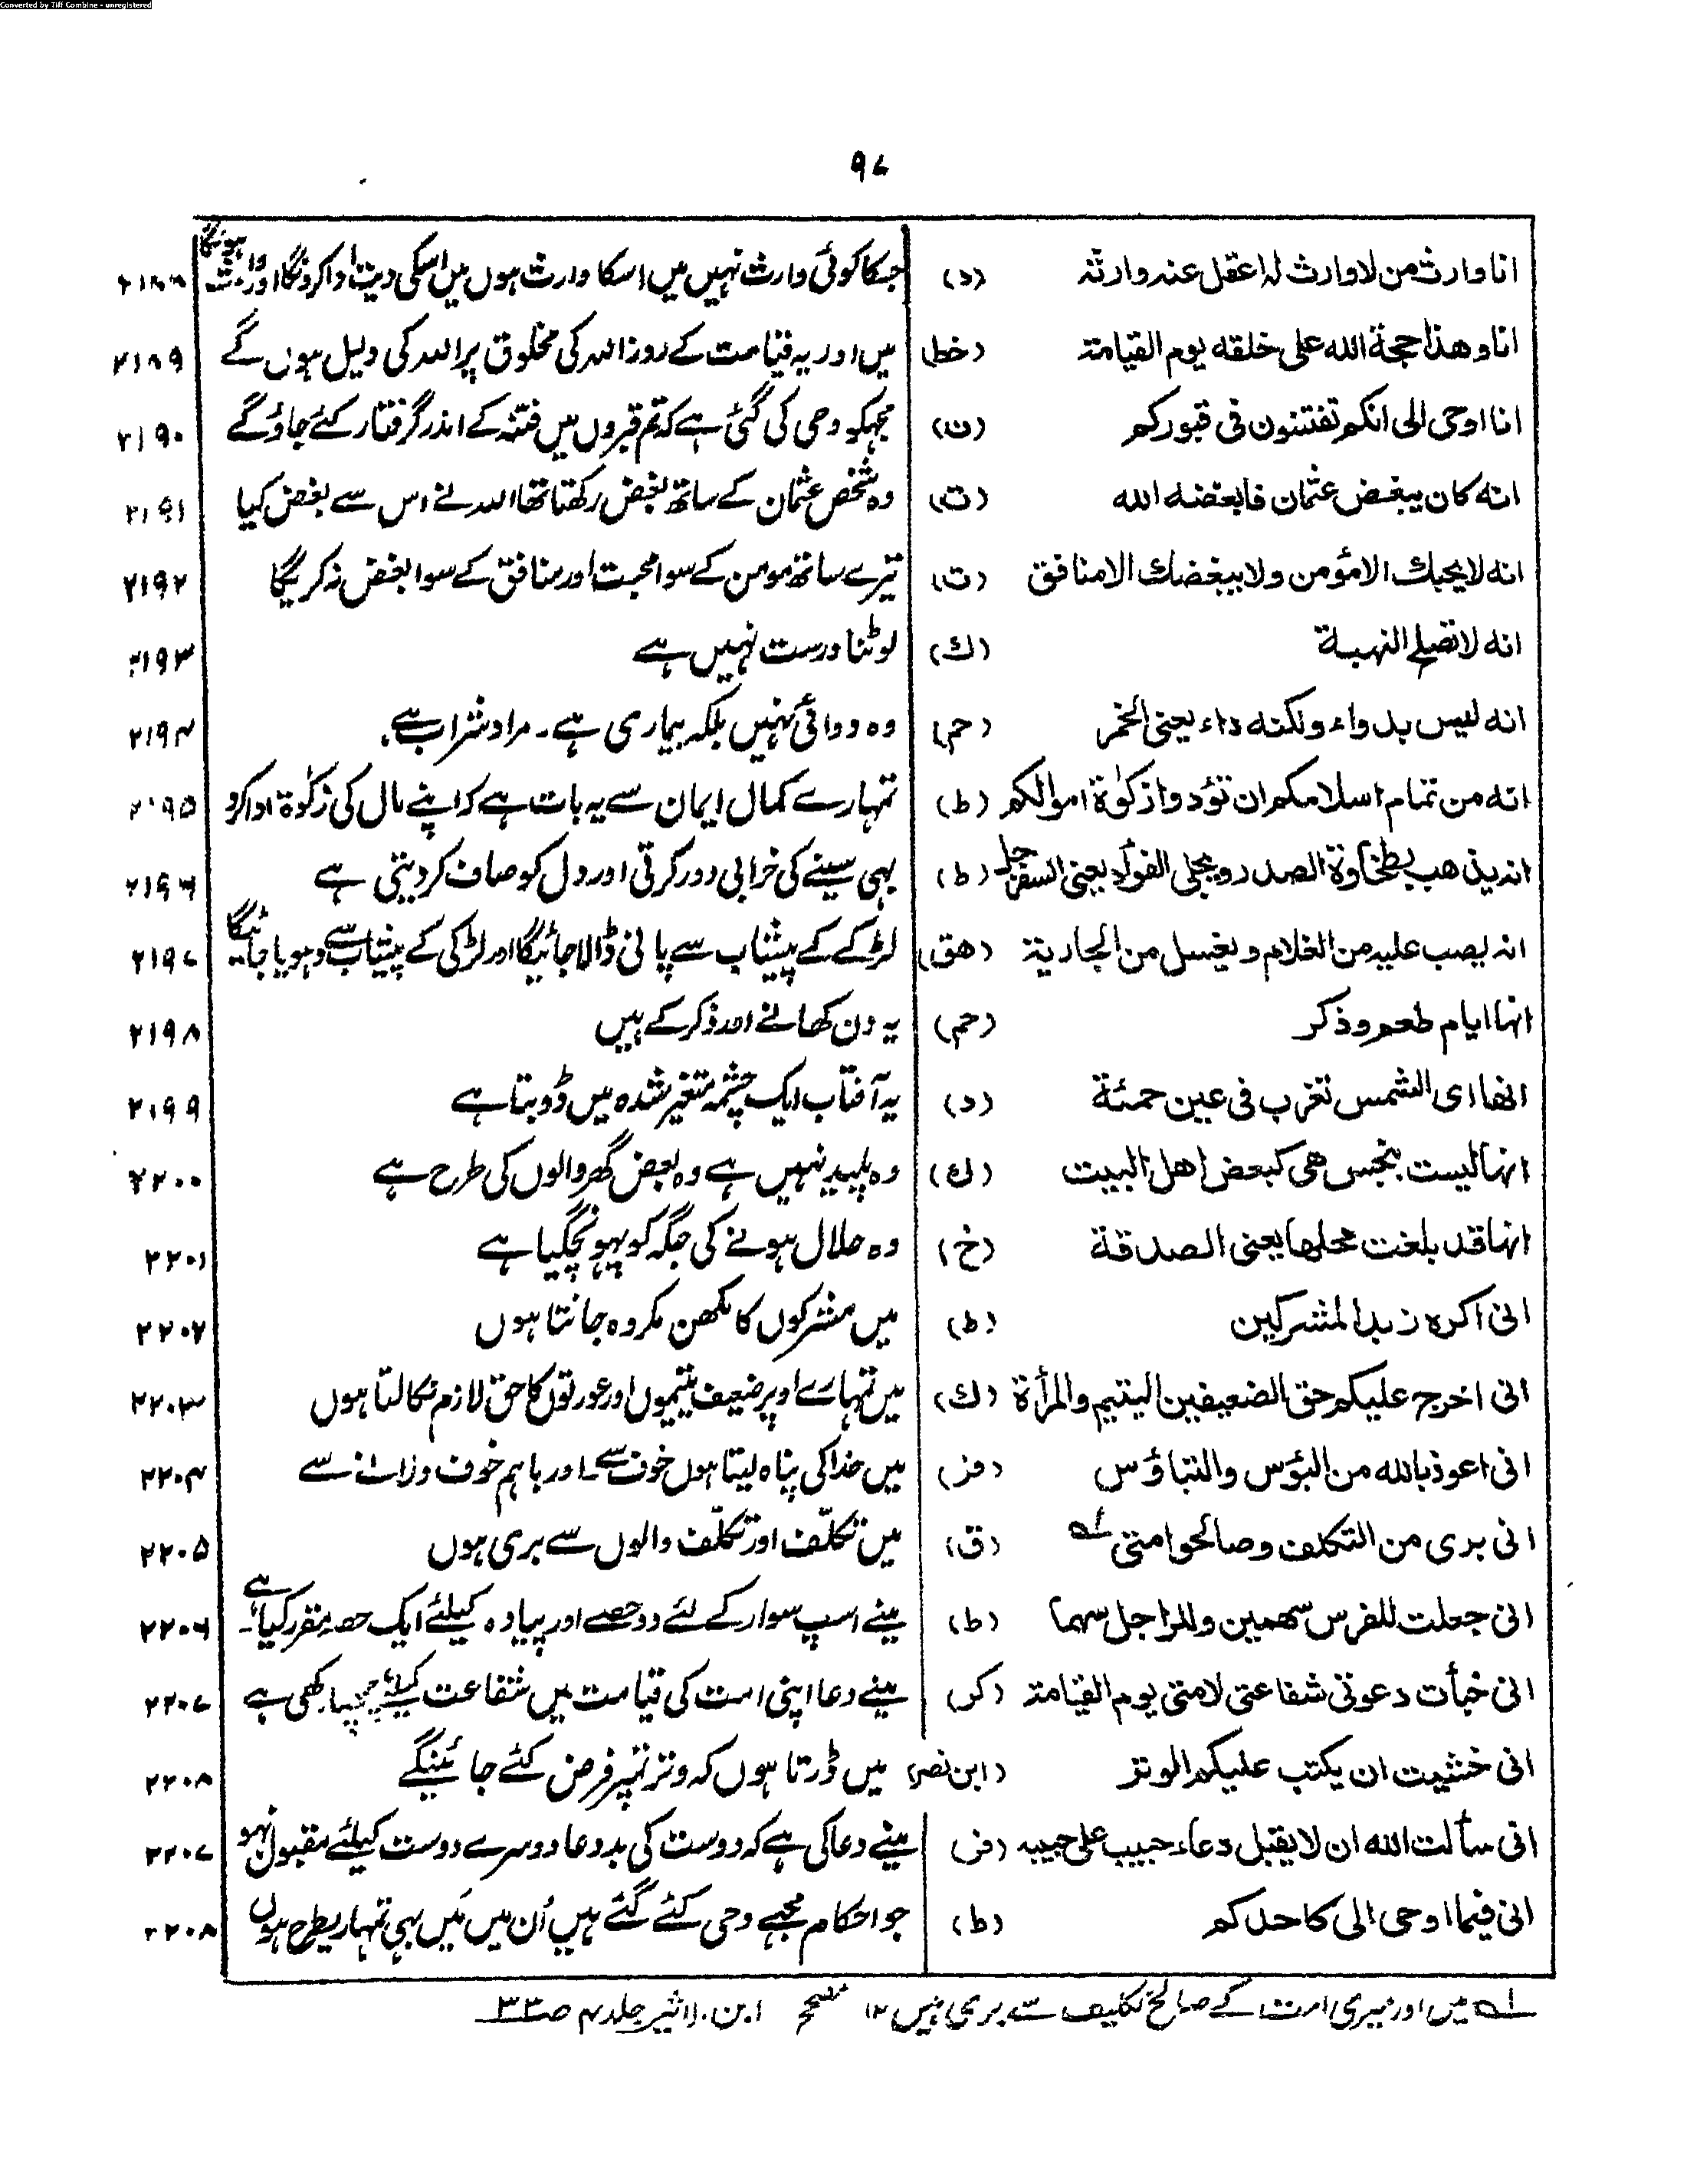 Converted by Tiff Combine - unregistered
۹۷
انا وارث من لا وارث له اعقل عنه وارثه (د) جسکا کوئی وارث نہیں میں اسکا وارث ہوں میں اسکی دیت ادا کرونگا اور وارث ہونگا ۲۱۸۸
انا وهذا حجة الله على خلقه يوم القيامة (خط) میں اور یہ قیامت کے روز اللہ کی مخلوق پر اللہ کی دلیل ہوں گے ۲۱۸۹
انا اوحى الى انكم تفتنون فى قبوركم (ن) مجہکو وحی کی گئی ہے کہ تم قبروں میں فتنہ کے اندر گرفتار کئے جاؤ گے ۲۱۹۰
انه كان يبغض عثمان فابغضه الله (ت) وہ شخص عثمان کے ساتھ بغض رکھتا تھا اللہ نے اس سے بغض کیا ۲۱۹۱
انه لا يحبك الا مؤمن ولا يبغضك الا منافق (ت) تیرے ساتھ مومن کے سوا محبت اور منافق کے سوا بغض نہ کریگا ۲۱۹۲
انه لا تصلح النهبة (ك) لوٹنا درست نہیں ہے ۲۱۹۳
انه ليس بدواء ولكنه داء يعنى الخمر (حم) وہ دوائی نہیں بلکہ بیماری ہے۔ مراد شراب ہے۔ ۲۱۹۴
انه من تمام اسلامكم ان تؤدوا زكوٰة اموالكم (ط) تمہارے کمال ایمان سے یہ بات ہے کہ اپنے مال کی زکوٰۃ ادا کرو ۲۱۹۵
انه يذهب بطخاوة الصدر ويجلى الفؤاد يعنى السفرجل (ط) بہی سینے کی خرابی دور کرتی اور دل کو صاف کر دیتی ہے ۲۱۹۶
انه يصب عليه من الغلام ويغسل من الجارية (هق) لڑکے کے پیشاب سے پانی ڈالا جائیگا اور لڑکی کے پیشاب سے دہویا جائیگا ۲۱۹۷
انها ايام طعم وذكر (حم) یہ دن کھانے اور ذکر کے ہیں ۲۱۹۸
انها اى الشمس تغرب فى عين حمئة (د) یہ آفتاب ایک چشمہ متغیر شدہ میں ڈوبتا ہے ۲۱۹۹
انها ليست بنجس هى كبعض اهل البيت (ك) وہ پلید نہیں ہے وہ بعض گھر والوں کی طرح ہے ۲۲۰۰
انها قد بلغت محلها يعنى الصدقة (خ) وہ حلال ہونے کی جگہ کو پہونچگیا ہے ۲۲۰۱
انى اكره زبد المشركين (ط) میں مشرکوں کا مکھن مکروہ جانتا ہوں ۲۲۰۲
انى اخرج عليكم حق الضعيفين اليتيم والمرأة (ك) میں تمہارے اوپر ضعیف یتیموں اور عورتوں کا حق لازم نکالتا ہوں ۲۲۰۳
انى اعوذ بالله من البؤس والتباؤس (فز) میں خدا کی پناہ لیتا ہوں خوف سے۔ اور باہم خوف دلانے سے ۲۲۰۴
انى برى من التكلف وصالحوا امتى لہ (ق) میں تکلّف اور تکلّف والوں سے بری ہوں ۲۲۰۵
انى جعلت للفرس سهمين وللراجل سهما (ط) مینے اسپ سوار کے لئے دو حصے اور پیادہ کیلئے ایک حصہ مقرر کیا ہے۔ ۲۲۰۶
انى خبأت دعوتى شفاعتى لامتى يوم القيامة (كر) مینے دعا اپنی امت کی قیامت میں شفاعت کیلئے چھپا رکھی ہے ۲۲۰۷
انى خشيت ان يكتب عليكم الوتر (ابن نصر) میں ڈرتا ہوں کہ وتر تمپر فرض کئے جائینگے ۲۲۰۸
انى سألت الله ان لا يقبل دعاء حبيب على حبيبه (فز) مینے دعا کی ہے کہ دوست کی بد دعا دوسرے دوست کیلئے مقبول نہو ۲۲۰۷
انى فيما اوحى الى كاحدكم (ط) جو احکام مجہے وحی کئے گئے ہیں اُن میں مَیں بہی تمہاریطرح ہوں ۲۲۰۸
لہ میں اور میری امت کے صالح تکلیف سے بری ہیں ۱۲ مصحح ابن الاثیر جلد ۴ صـ ۳۳